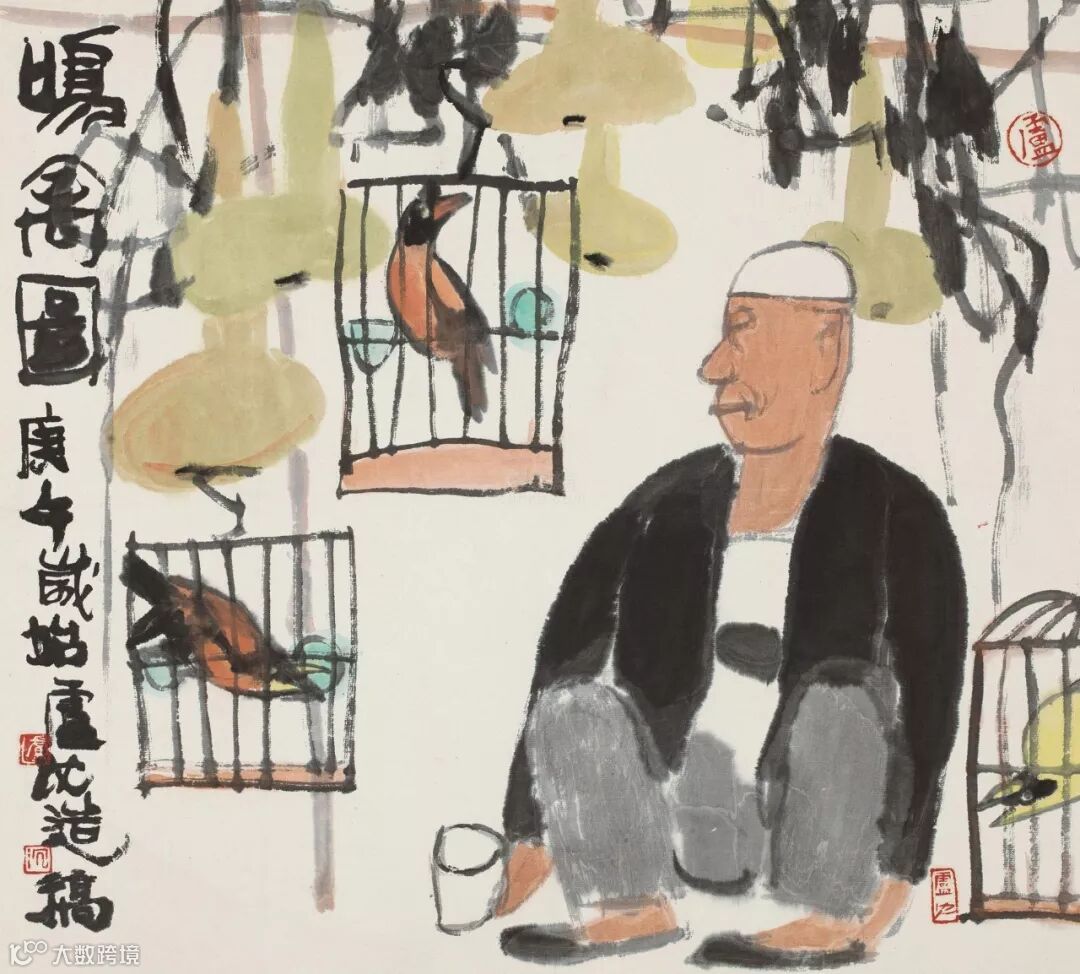 鳴禽圖 庚午歲始盧沈造稿
盧
沉
盧沉
大数跨境